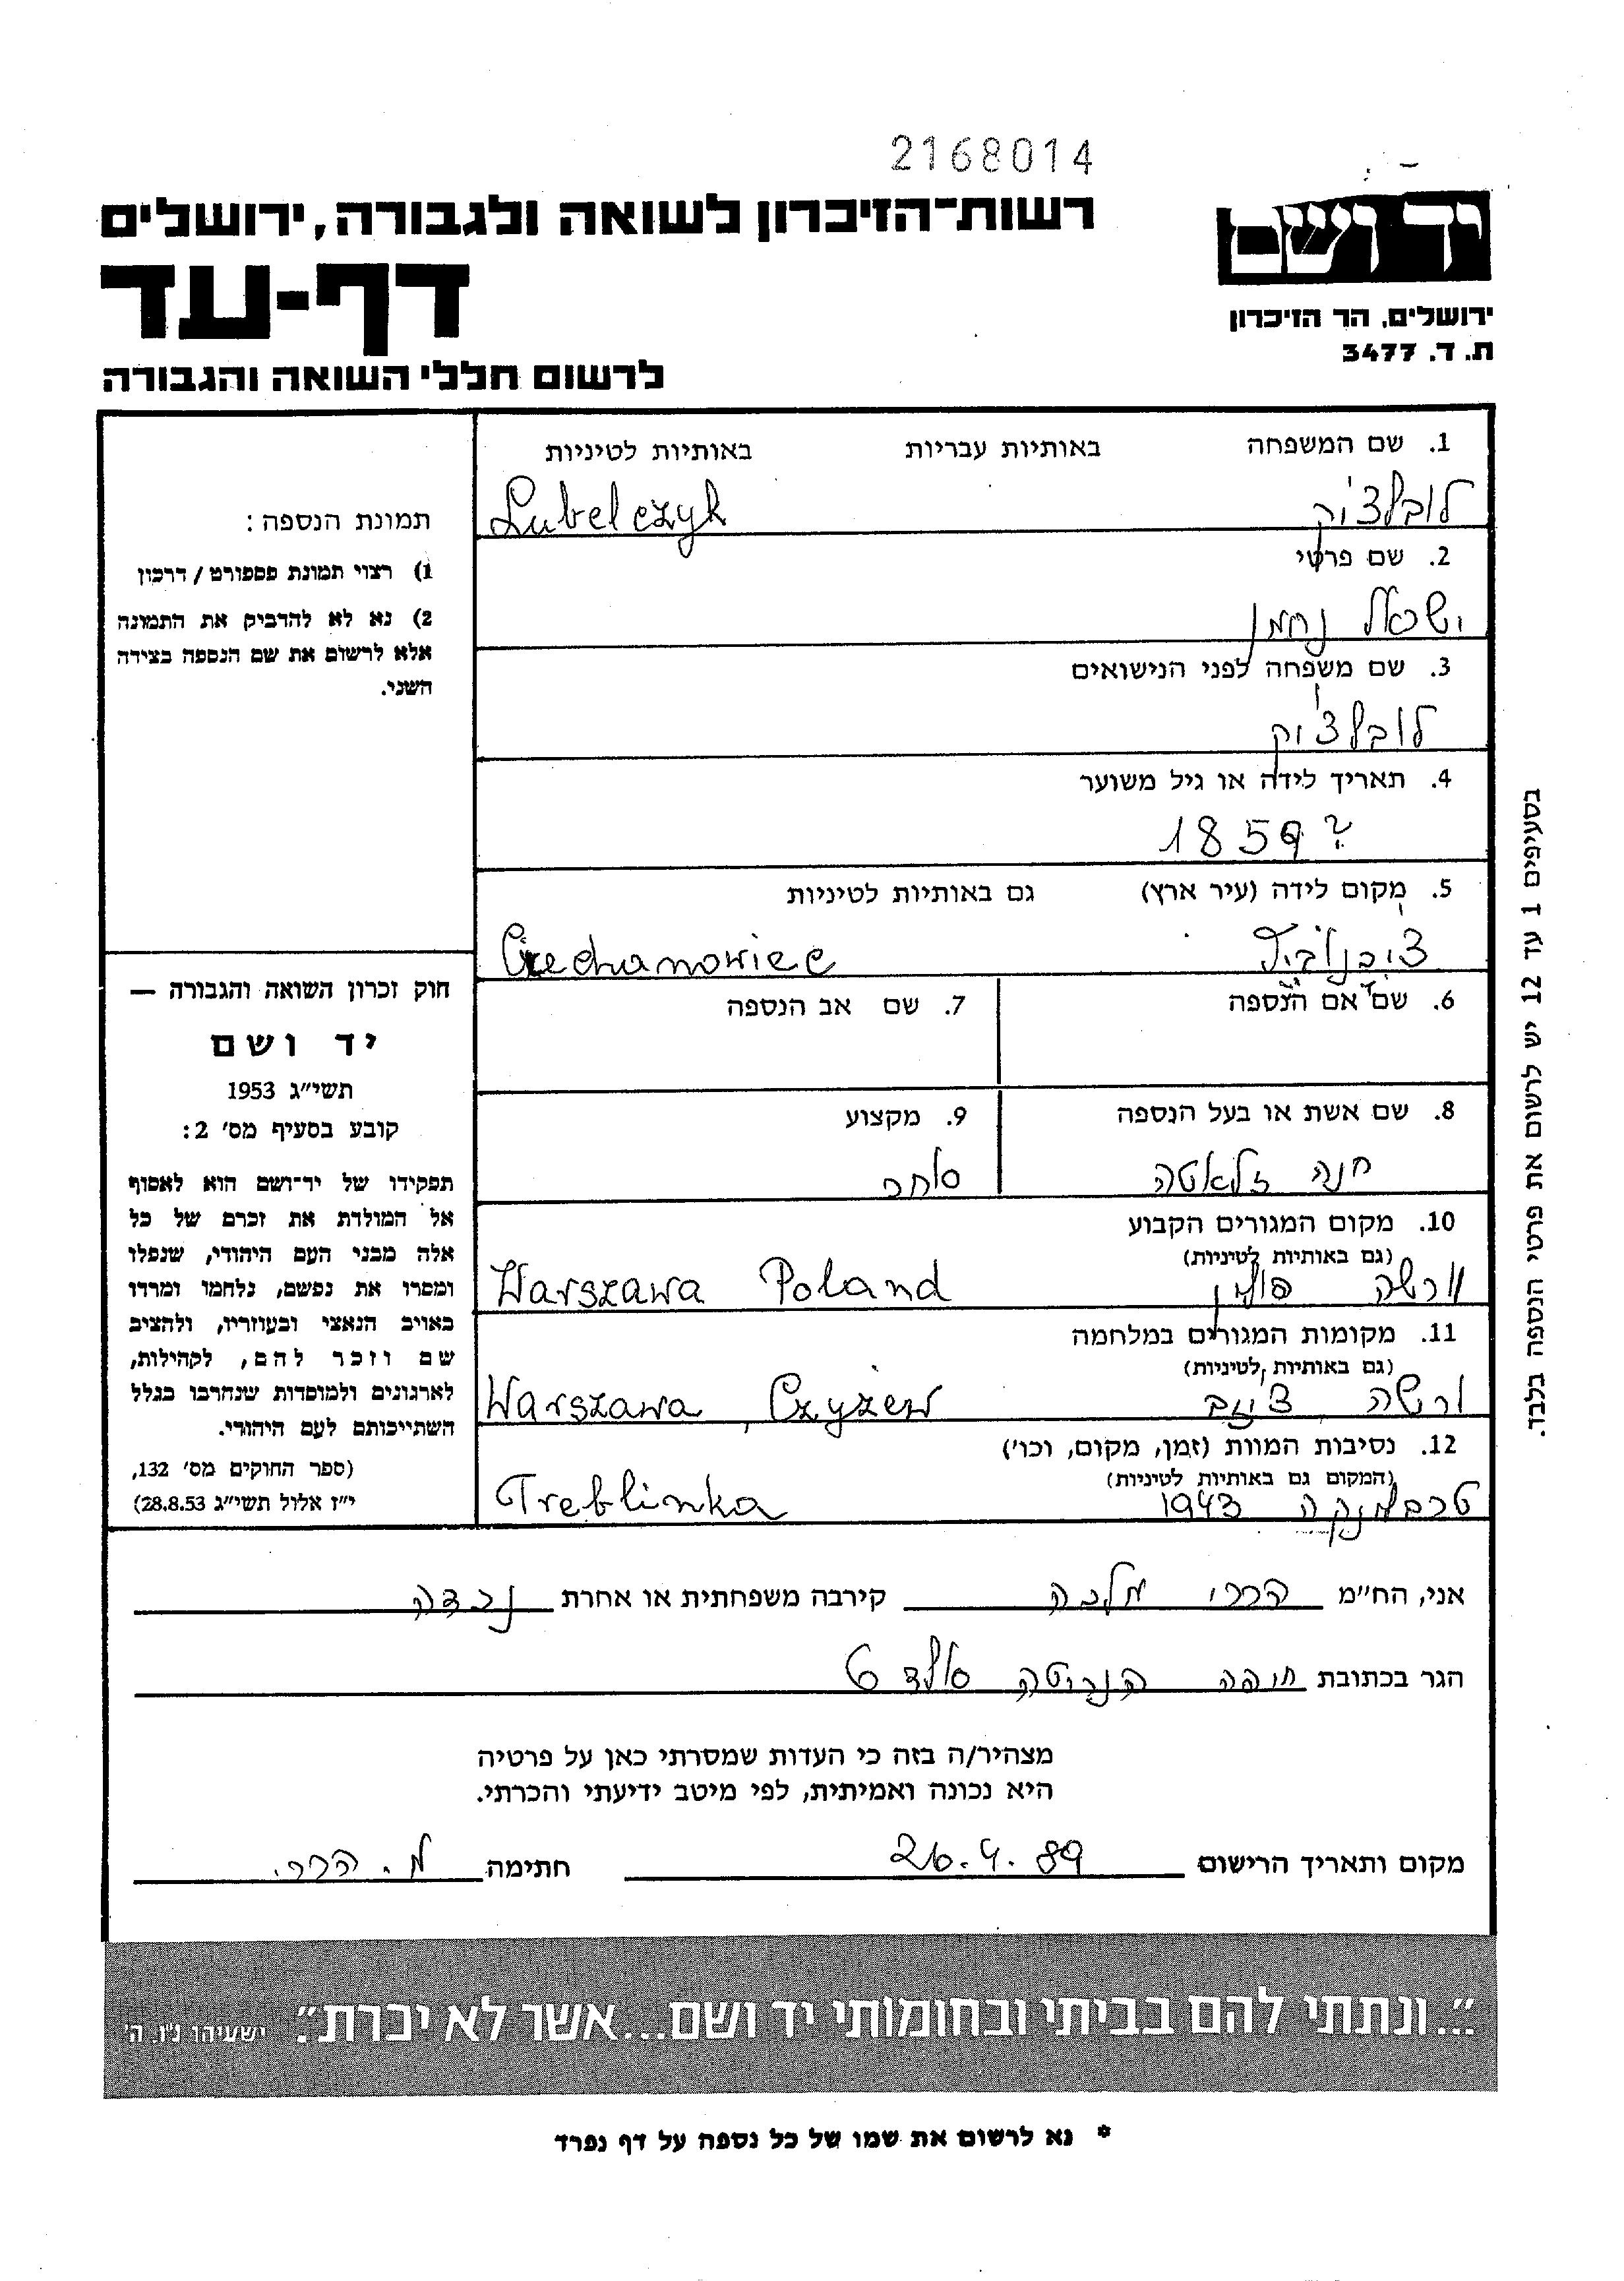 2168014
יד ושם
רשות־הזיכרון לשואה ולגבורה, ירושלים
דף-עד
ירושלים, הר הזיכרון
ת. ד. 3477
לרשום חללי השואה והגבורה
1. שם המשפחה באותיות עבריות באותיות לטיניות
לובלצ'יק Lubelczyk
2. שם פרטי
ישראל נחמן
3. שם משפחה לפני הנישואים
לובלצ'יק
4. תאריך לידה או גיל משוער
1859 ?
5. מקום לידה (עיר ארץ) גם באותיות לטיניות
Ciechanowiec
6. שם אם הנספה 7. שם אב הנספה
8. שם אשת או בעל הנספה 9. מקצוע
חנה זלאטה סוחר
10. מקום המגורים הקבוע
(גם באותיות לטיניות)
ורשה פולין Warszawa Poland
11. מקומות המגורים במלחמה
(גם באותיות לטיניות)
ורשה Warszawa, Czyżew
12. נסיבות המוות (זמן, מקום, וכו')
(המקום גם באותיות לטיניות)
טרבלינקה 1943 Treblinka
תמונת הנספה:
1) רצוי תמונת פספורט/דרכון
2) נא לא להדביק את התמונה
אלא לרשום את שם הנספה בצידה
השני.
חוק זכרון השואה והגבורה —
יד ושם
תשי"ג 1953
קובע בסעיף מס' 2:
תפקידו של יד־ושם הוא לאסוף
אל המולדת את זכרם של כל
אלה מבני העם היהודי, שנפלו
ומסרו את נפשם, נלחמו ומרדו
באויב הנאצי ובעוזריו, ולהציב
שם וזכר להם, לקהילות,
לארגונים ולמוסדות שנחרבו בגלל
השתייכותם לעם היהודי.
(ספר החוקים מס' 132,
י"ז אלול תשי"ג 28.8.53)
בסעיפים 1 עד 12 יש לרשום את פרטי הנספה בלבד.
אני, הח"מ הררי מלכה קירבה משפחתית או אחרת נכדה
הגר בכתובת חיפה הנריטה סולד 6
מצהיר/ה בזה כי העדות שמסרתי כאן על פרטיה
היא נכונה ואמיתית, לפי מיטב ידיעתי והכרתי.
מקום ותאריך הרישום 26.4.89 חתימה מ. הררי
"...ונתתי להם בביתי ובחומותי יד ושם...אשר לא יכרת". ישעיהו נ"ו, ה'
* נא לרשום את שמו של כל נספה על דף נפרד